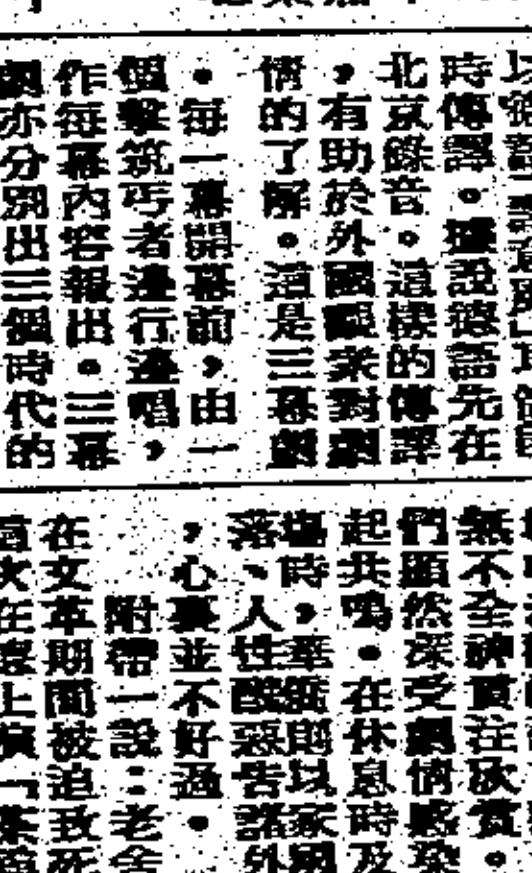 時傳譯。據說德語先在
北京錄音。這樣的傳譯
，有助於外國觀衆對劇
情的了解。這是三幕劇
。每一幕開幕前，由一
個擊筑丐者邊行邊唱，
作每幕內容報出。三幕
劇亦分別出三個時代的
無不全神貫注欣賞。
們顯然深受劇情感染
起共鳴。在休息時及
場時，羣衆則以家國
落、人性醜惡告諸外
，心事並不好過。
附帶一說：老舍
在文革期間被迫致死